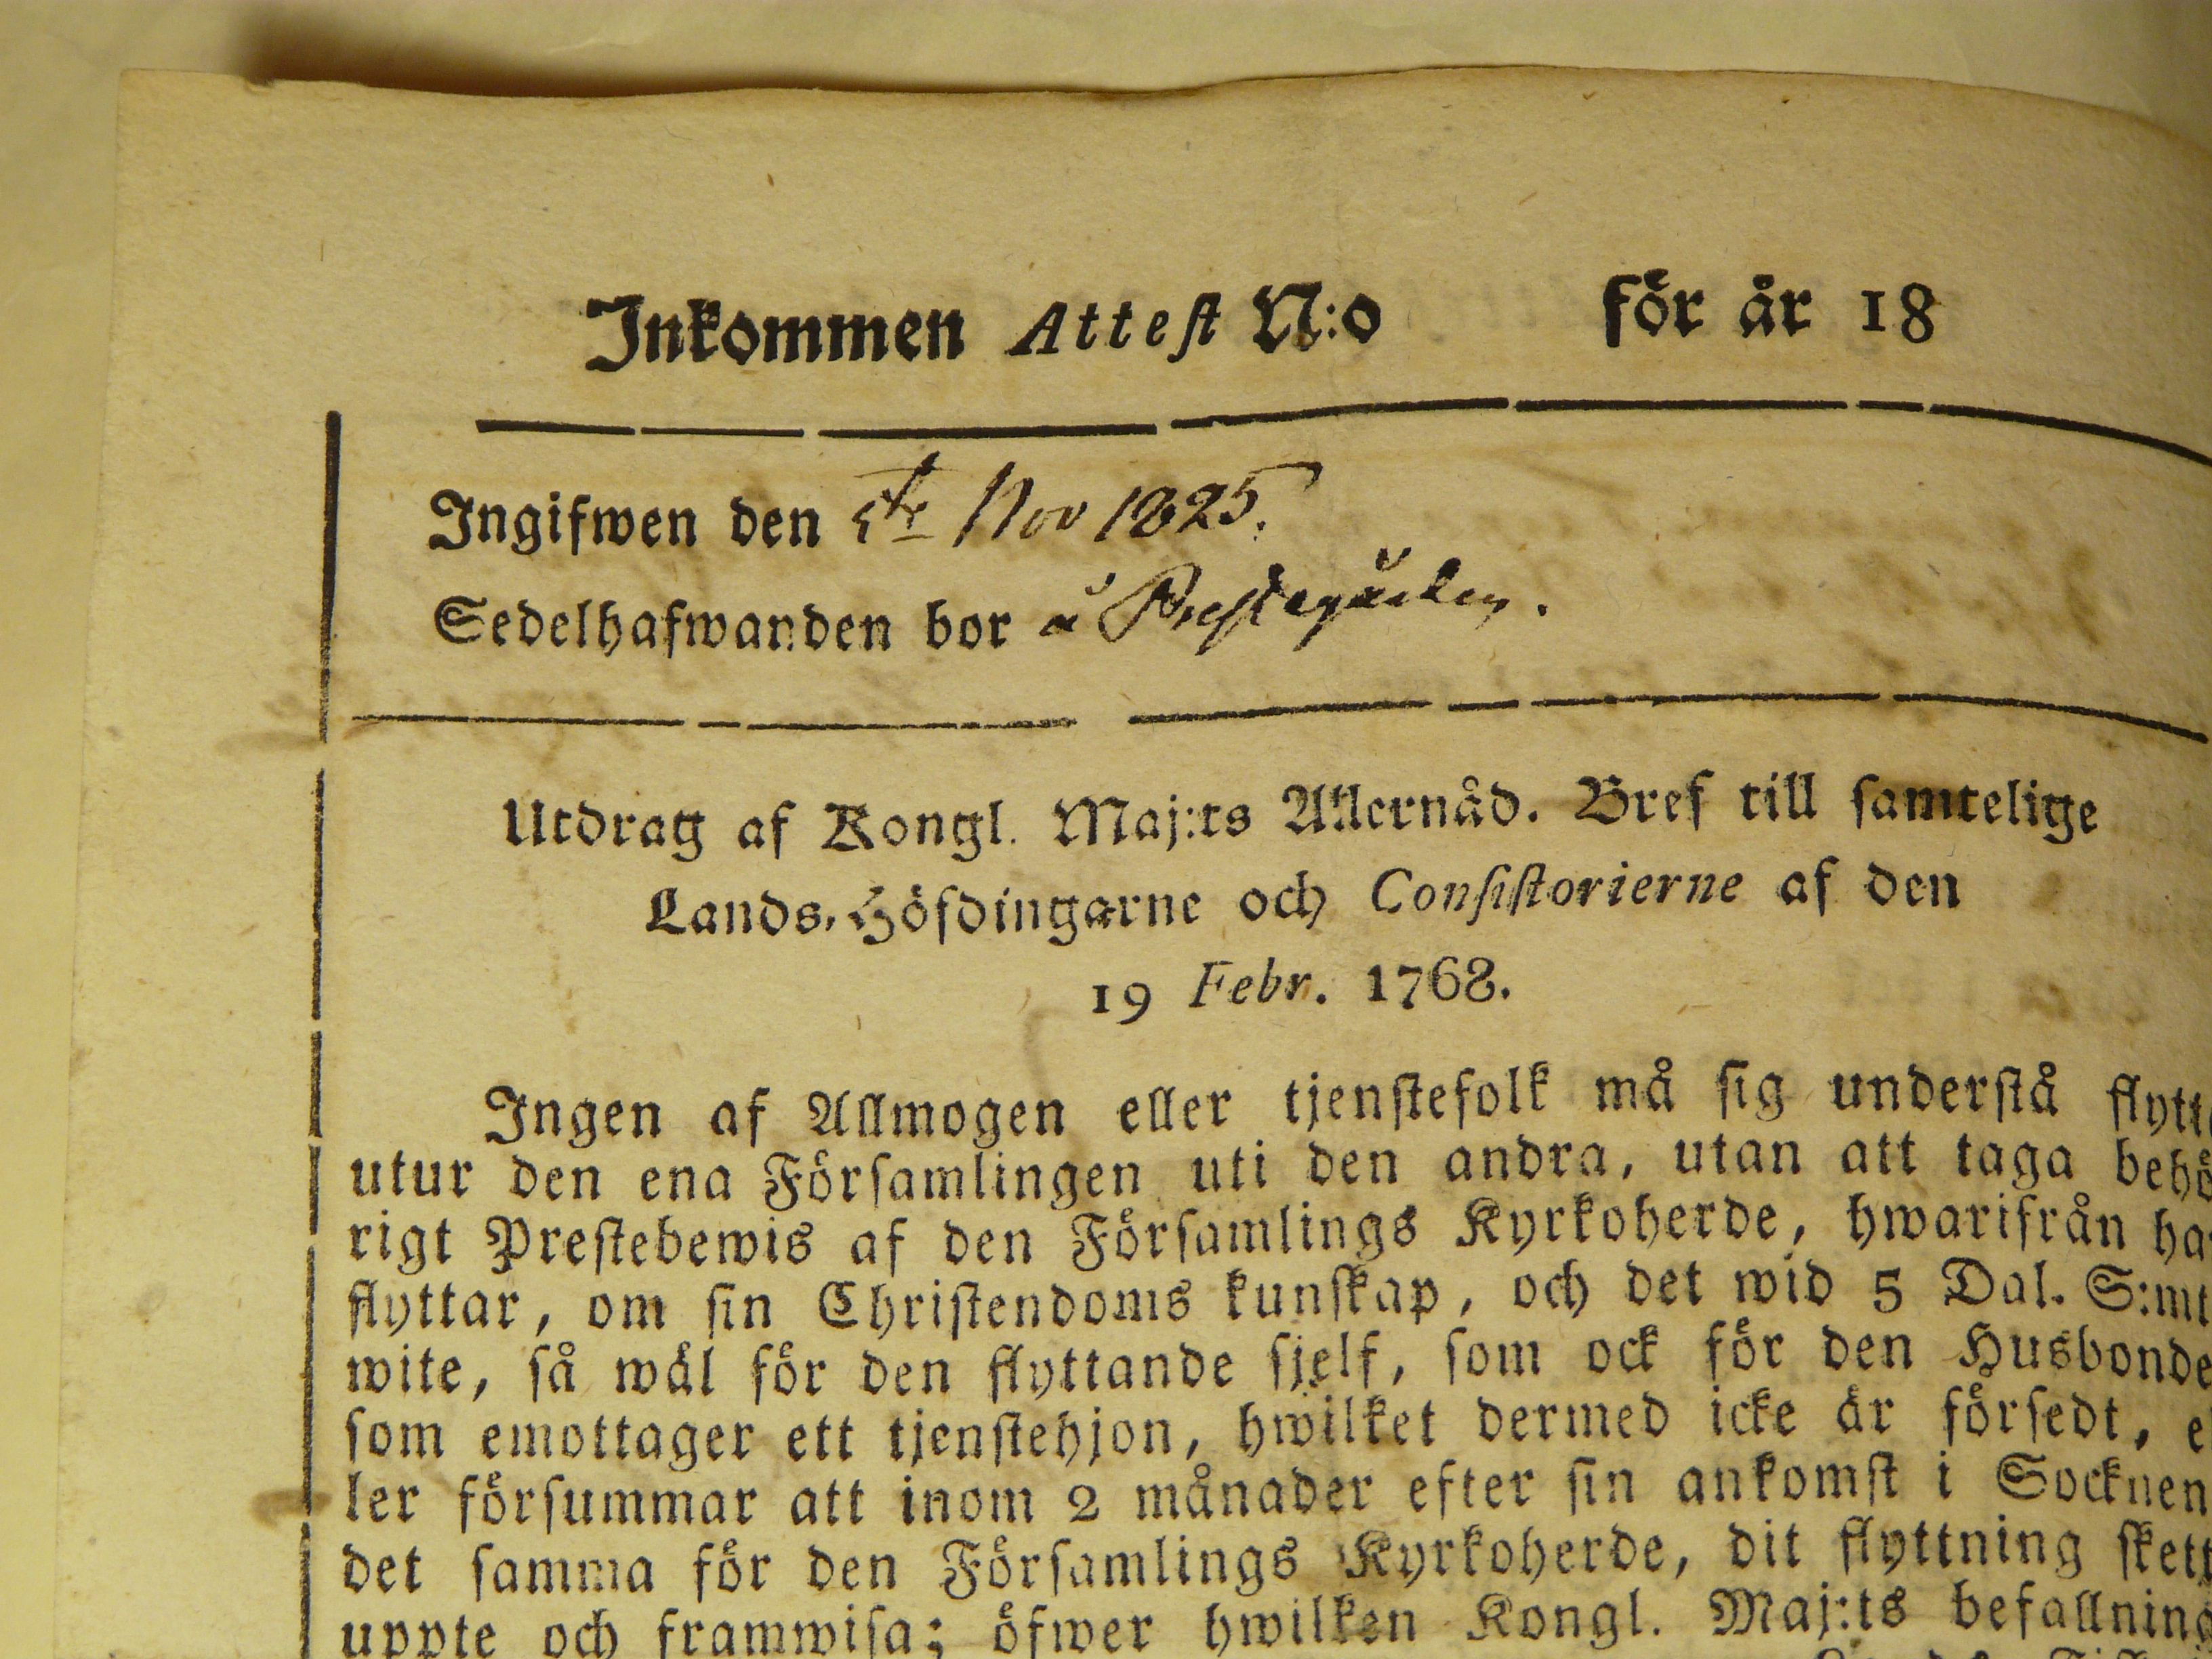 Inkommen Attest N:o för år 18
Ingifwen den 5te Nov 1825.
Sedelhafwanden bor å Prestegården.
Utdrag af Kongl. Maj:ts Allernåd. Bref till samtelige
Lands-Höfdingarne och Consistorierne af den
19 Febr. 1768.
Ingen af Allmogen eller tjenstefolk må sig understå flytt
utur den ena Församlingen uti den andra, utan att taga behö
rigt Prestebewis af den Församlings Kyrkoherde, hwarifrån ha
flyttar, om sin Christendoms kunskap, och det wid 5 Dal. S:mt
wite, så wäl för den flyttande sjelf, som ock för den Husbonde
som emottager ett tjenstehjon, hwilket dermed icke är försedt, e
ler försummar att inom 2 månader efter sin ankomst i Socknen
det samma för den Församlings Kyrkoherde, dit flyttning skett
uppte och framwisa; öfwer hwilken Kongl. Maj:ts befallning